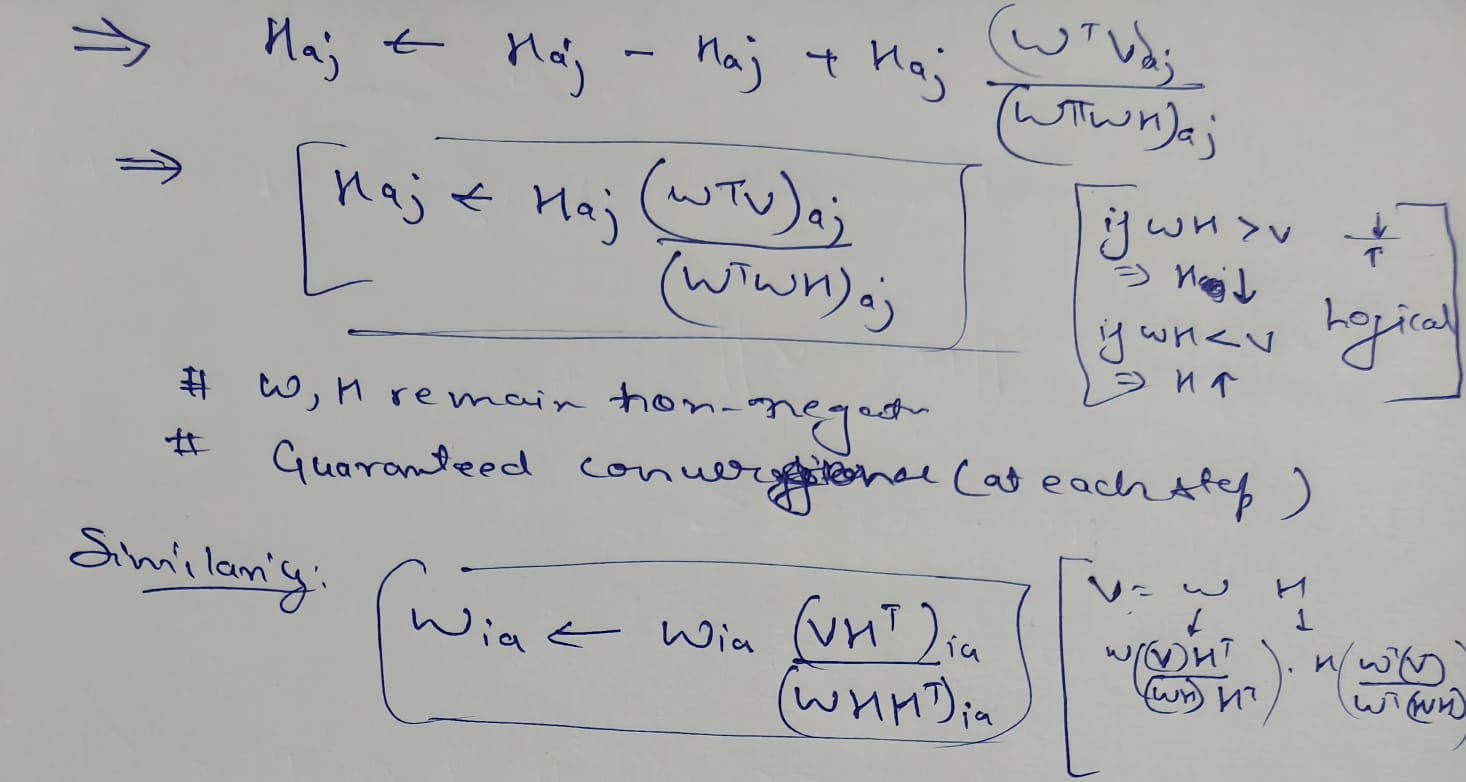 ⇒ Haj ← Haj - Haj + Haj (WᵀV)aj / (WᵀWH)aj
⇒ Haj ← Haj (WᵀV)aj / (WᵀWH)aj
if WH > V ↓/↑
⇒ Haj ↓
if WH < V Logical
⇒ H ↑
# W, H remain non-negative
# Guaranteed convergence (at each step)
Similarly:
Wia ← Wia (VHᵀ)ia / (WHHᵀ)ia
V = W H
↓ ↓
W((V)Hᵀ / (WH)Hᵀ) . H(Wᵀ(V) / Wᵀ(WH))